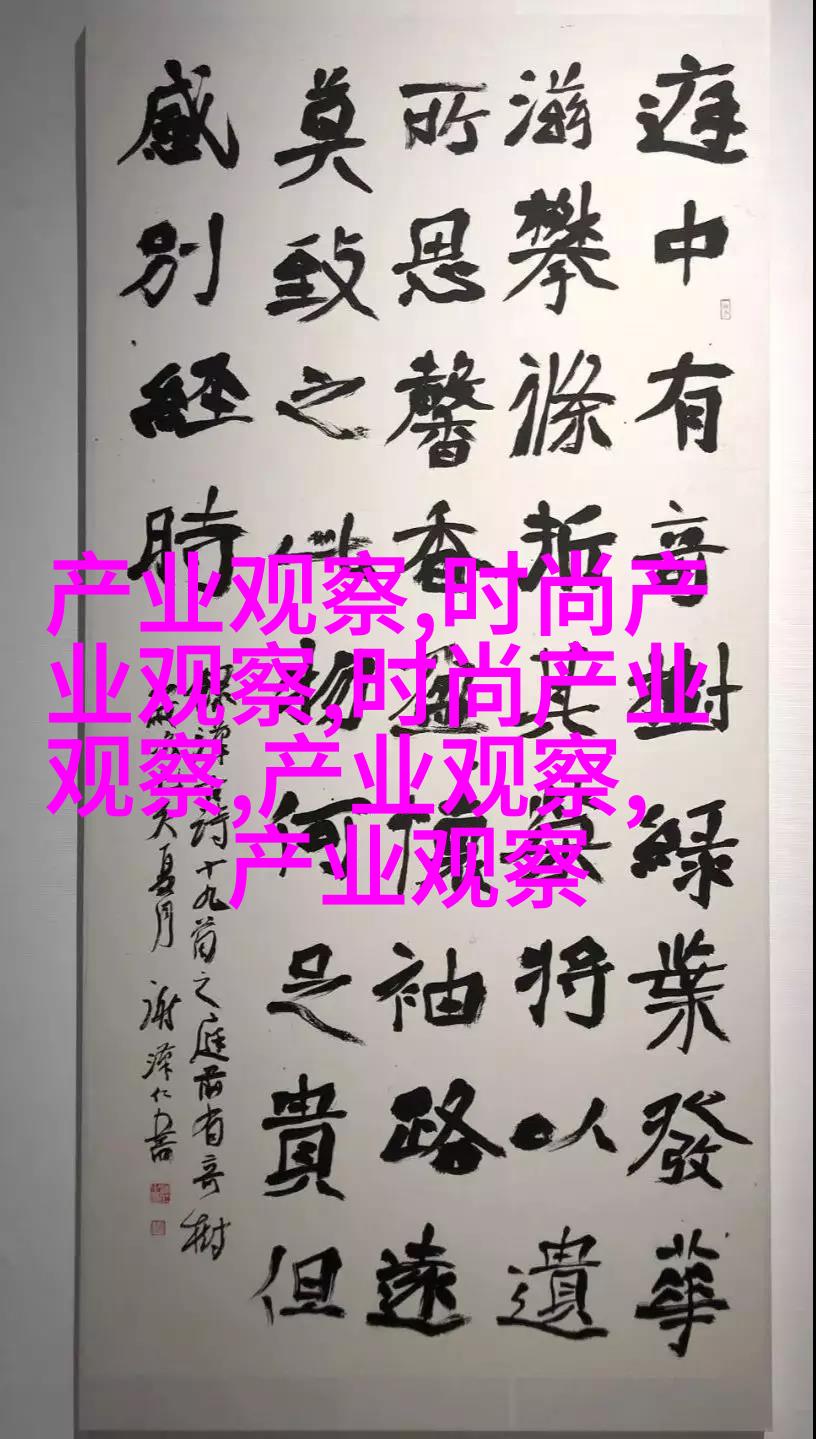 庭中有奇樹緑葉發華
滋攀條折其榮將以遺
所思馨香盈懷袖路遠
莫致之此物何足貴但
感別經時
詩十九首之庭前有奇樹
夏月 謝澤仁書
产业观察,时尚产
业观察,时尚产业
观察,产业观察,
产业观察